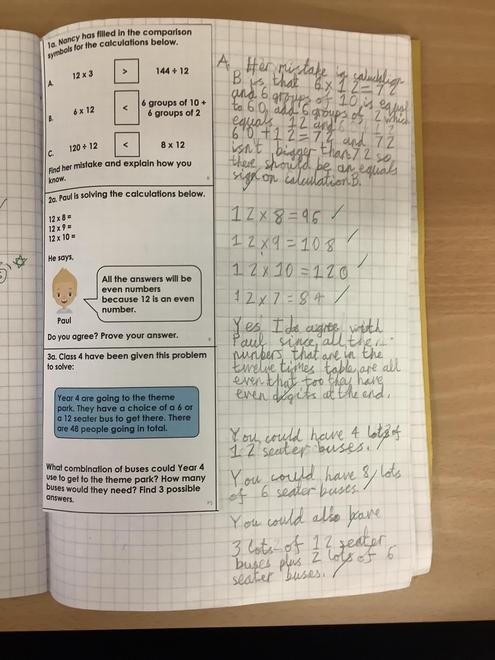 1a. Nancy has filled in the comparison
symbols for the calculations below.
A. 12 x 3 > 144 ÷ 12
B. 6 x 12 < 6 groups of 10 +
6 groups of 2
C. 120 ÷ 12 < 8 x 12
Find her mistake and explain how you
know.
2a. Paul is solving the calculations below.
12 x 8 =
12 x 9 =
12 x 10 =
He says,
All the answers will be
even numbers
because 12 is an even
number.
Paul
Do you agree? Prove your answer.
3a. Class 4 have been given this problem
to solve:
Year 4 are going to the theme
park. They have a choice of a 6 or
a 12 seater bus to get there. There
are 48 people going in total.
What combination of buses could Year 4
use to get to the theme park? How many
buses would they need? Find 3 possible
answers.
A. Her mistake in calculation
B is that 6 x 12 = 72
and 6 groups of 10 is equal
to 60 add 6 groups of 2 which
equals 12 and
60 + 12 = 72 and 72
isn't bigger than 72 so
there should be an equals
sign on calculation B.
12 x 8 = 96 ✓
12 x 9 = 108 ✓
12 x 10 = 120 ✓
12 x 7 = 84 ✓
Yes I do agree with
Paul since all the
numbers that are in the
twelve times table are all
even that too they have
even digits at the end.
You could have 4 lots of
12 seater buses.
You could have 8 lots
of 6 seater buses.
You could also have
3 lots of 12 seater
buses plus 2 lots of 6
seater buses.